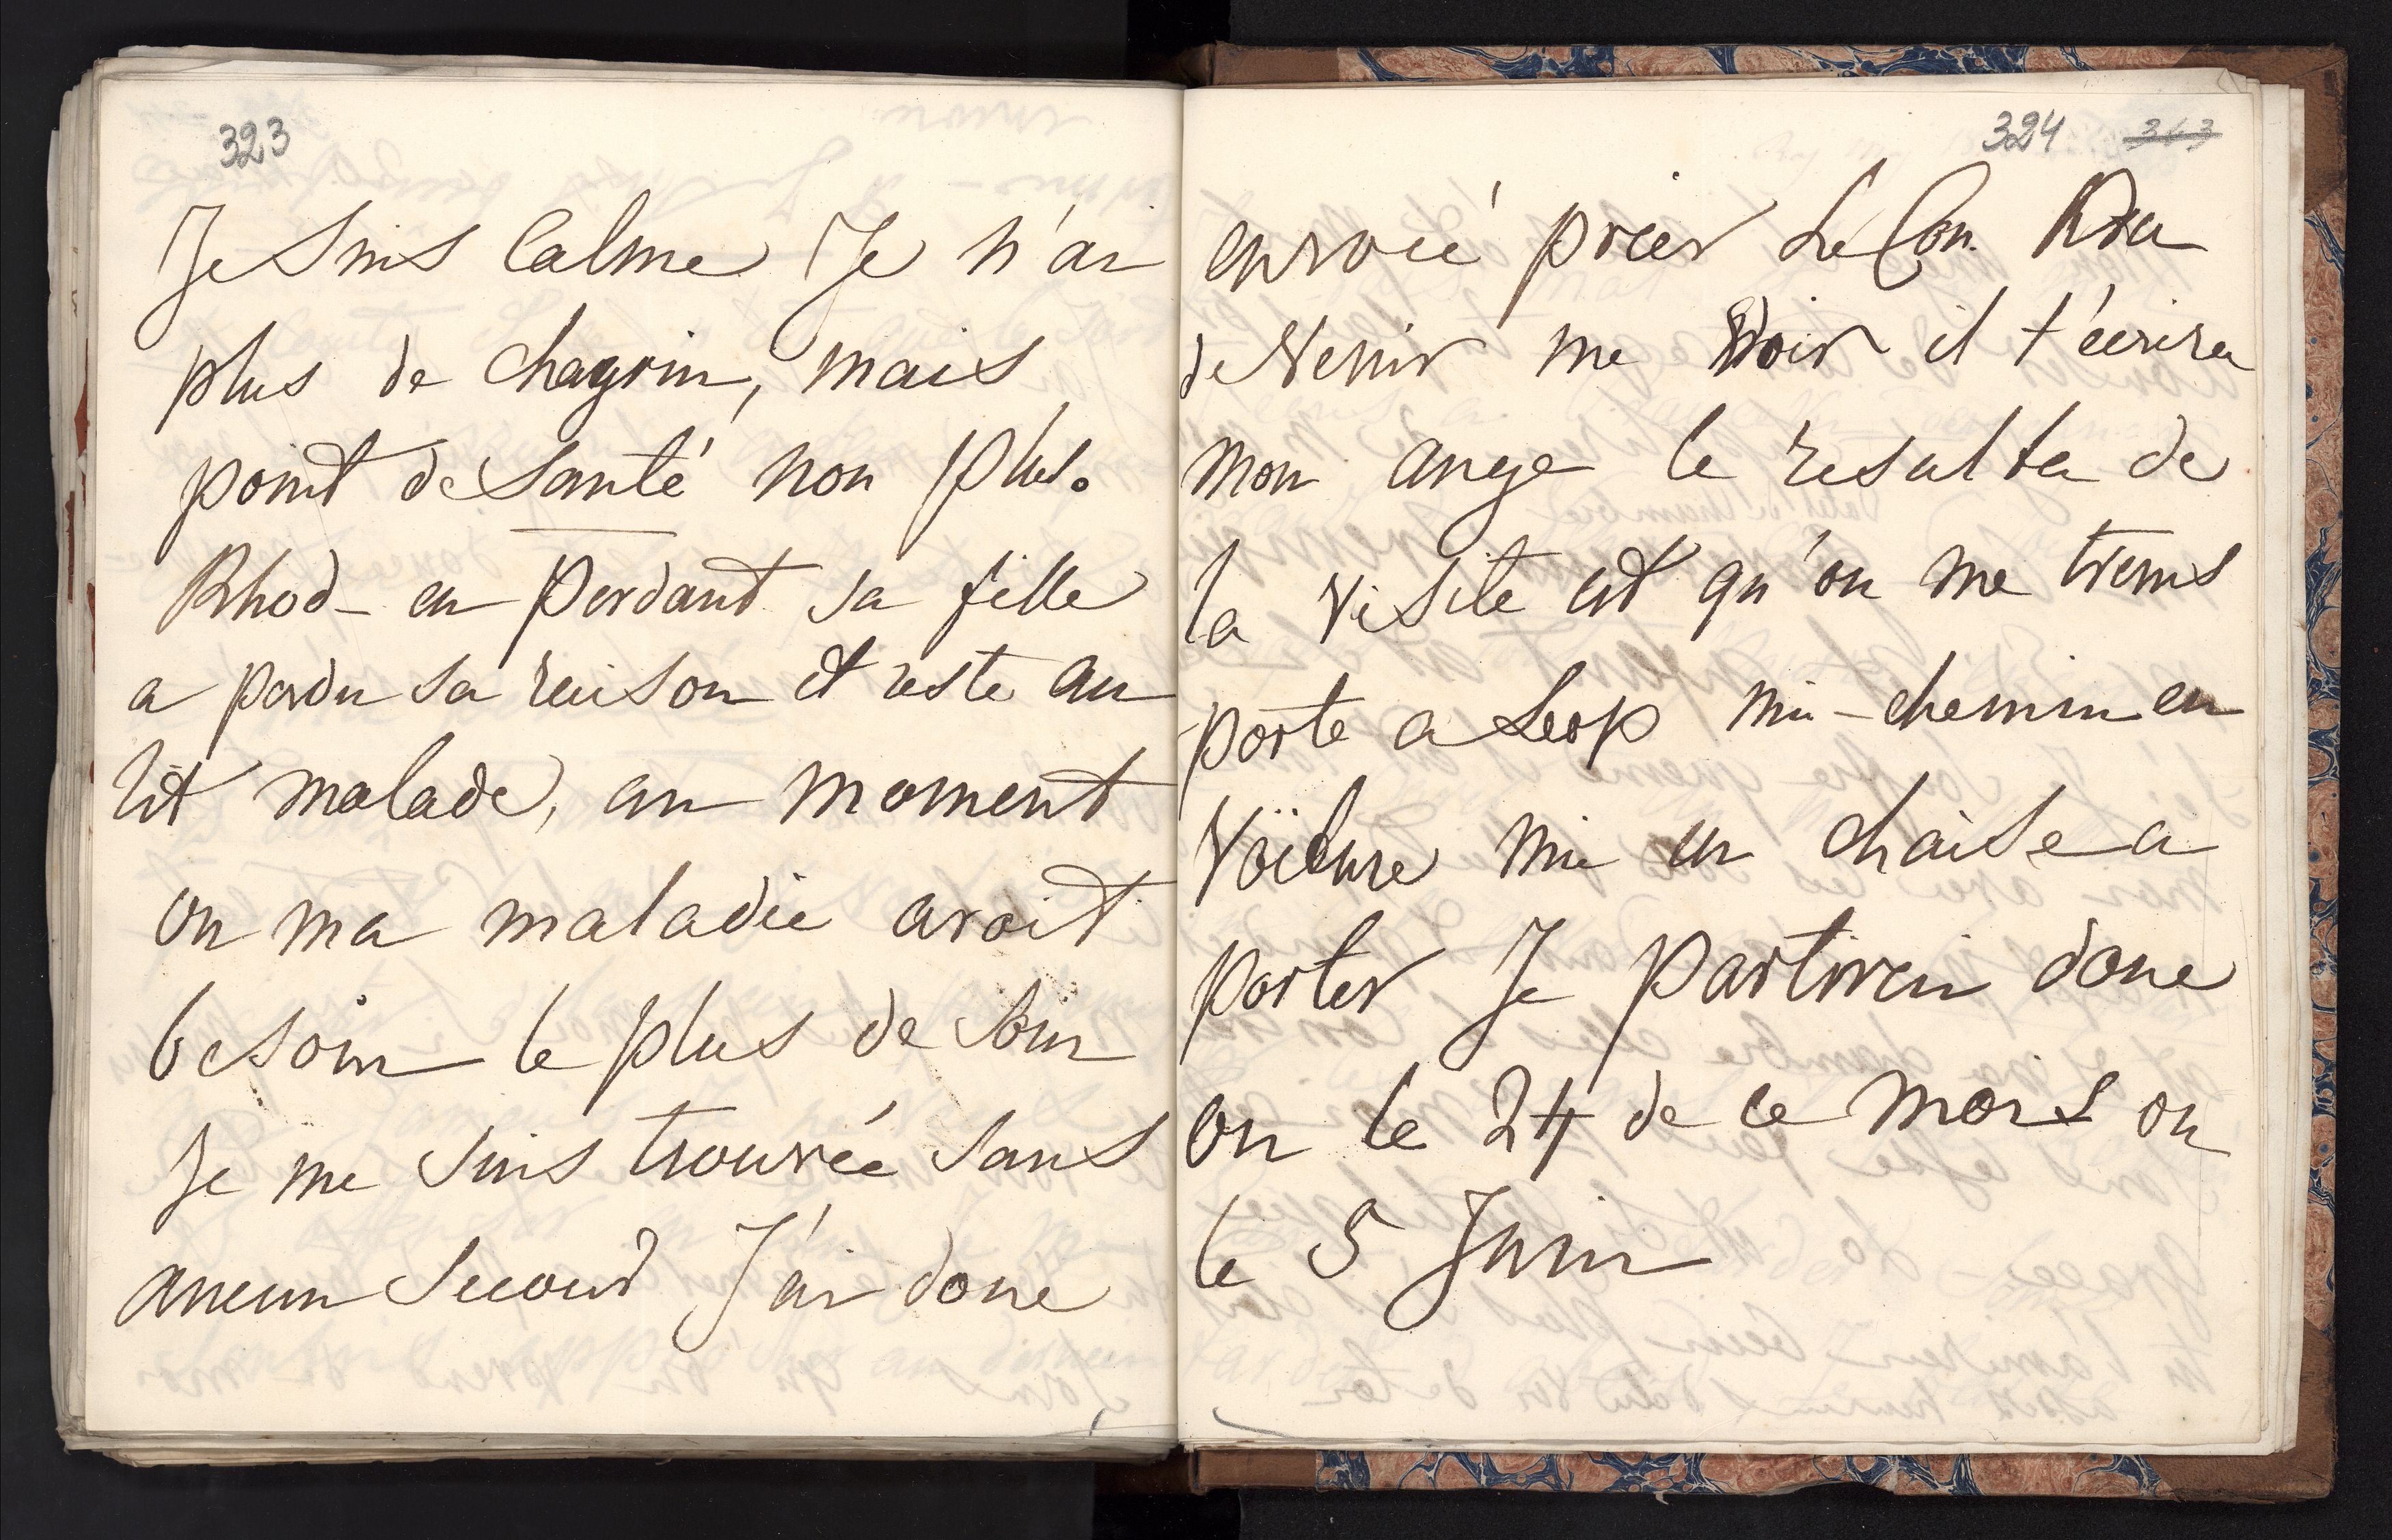 323
Je suis Calme Je n'ai
plus de chagrin, mais
point de santé non plus.
Rhod- en perdant sa fille
a perdu sa raison et reste au
lit malade, au moment
ou ma maladie avoit
besoin le plus de soin
Je me suis trouvée sans
aucun secours J'ai donc
324 343
envoié prier Le Con.
de venir me voir il t'écrira
mon ange le resulta de
la visite est qu'on me trens
porte a Leop mi-chemin en
voiture mi en chaise a
porter Je partirai donc
ou le 24 de ce mois ou
le 5 Juin